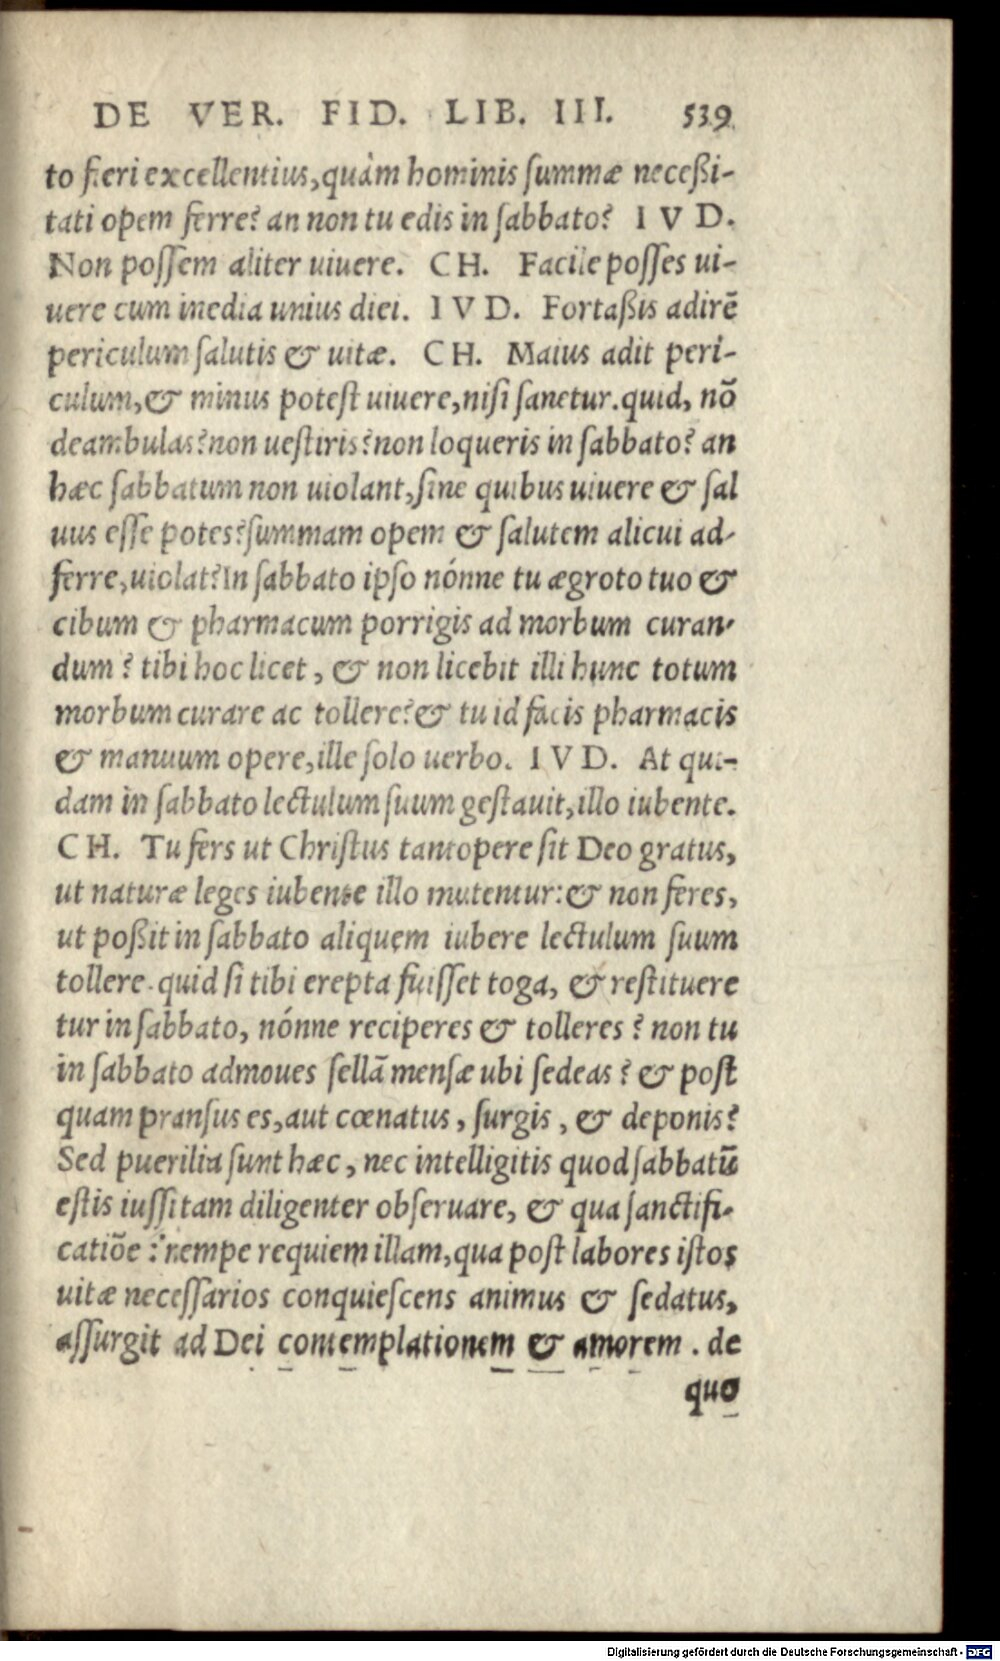 DE VER. FID. LIB. III. 539
to fieri excellentius, quàm hominis summæ neceßi-
tati opem ferre? an non tu edis in sabbato? IVD.
Non possem aliter uiuere. CH. Facile posses ui-
uere cum inedia unius diei. IVD. Fortaßis adirē
periculum salutis & uitæ. CH. Maius adit peri-
culum, & minus potest uiuere, nisi sanetur. quid, nō
deambulas? non uestiris? non loqueris in sabbato? an
hæc sabbatum non uiolant, sine quibus uiuere & sal
uus esse potes? summam opem & salutem alicui ad-
ferre, uiolat? In sabbato ipso nónne tu ægroto tuo &
cibum & pharmacum porrigis ad morbum curan-
dum? tibi hoc licet, & non licebit illi hunc totum
morbum curare ac tollere? & tu id facis pharmacis
& manuum opere, ille solo uerbo. IVD. At qui-
dam in sabbato lectulum suum gestauit, illo iubente.
CH. Tu fers ut Christus tantopere sit Deo gratus,
ut naturæ leges iubente illo mutentur: & non feres,
ut poßit in sabbato aliquem iubere lectulum suum
tollere. quid si tibi erepta fuisset toga, & restituere
tur in sabbato, nónne reciperes & tolleres? non tu
in sabbato admoues sellā mensæ ubi sedeas? & post
quam pransus es, aut cœnatus, surgis, & deponis?
Sed puerilia sunt hæc, nec intelligitis quod sabbatū
estis iussi tam diligenter obseruare, & qua sanctifi-
catiōe: nempe requiem illam, qua post labores istos
uitæ necessarios conquiescens animus & sedatus,
assurgit ad Dei contemplationem & amorem. de
quo
Digitalisierung gefördert durch die Deutsche Forschungsgemeinschaft - DFG